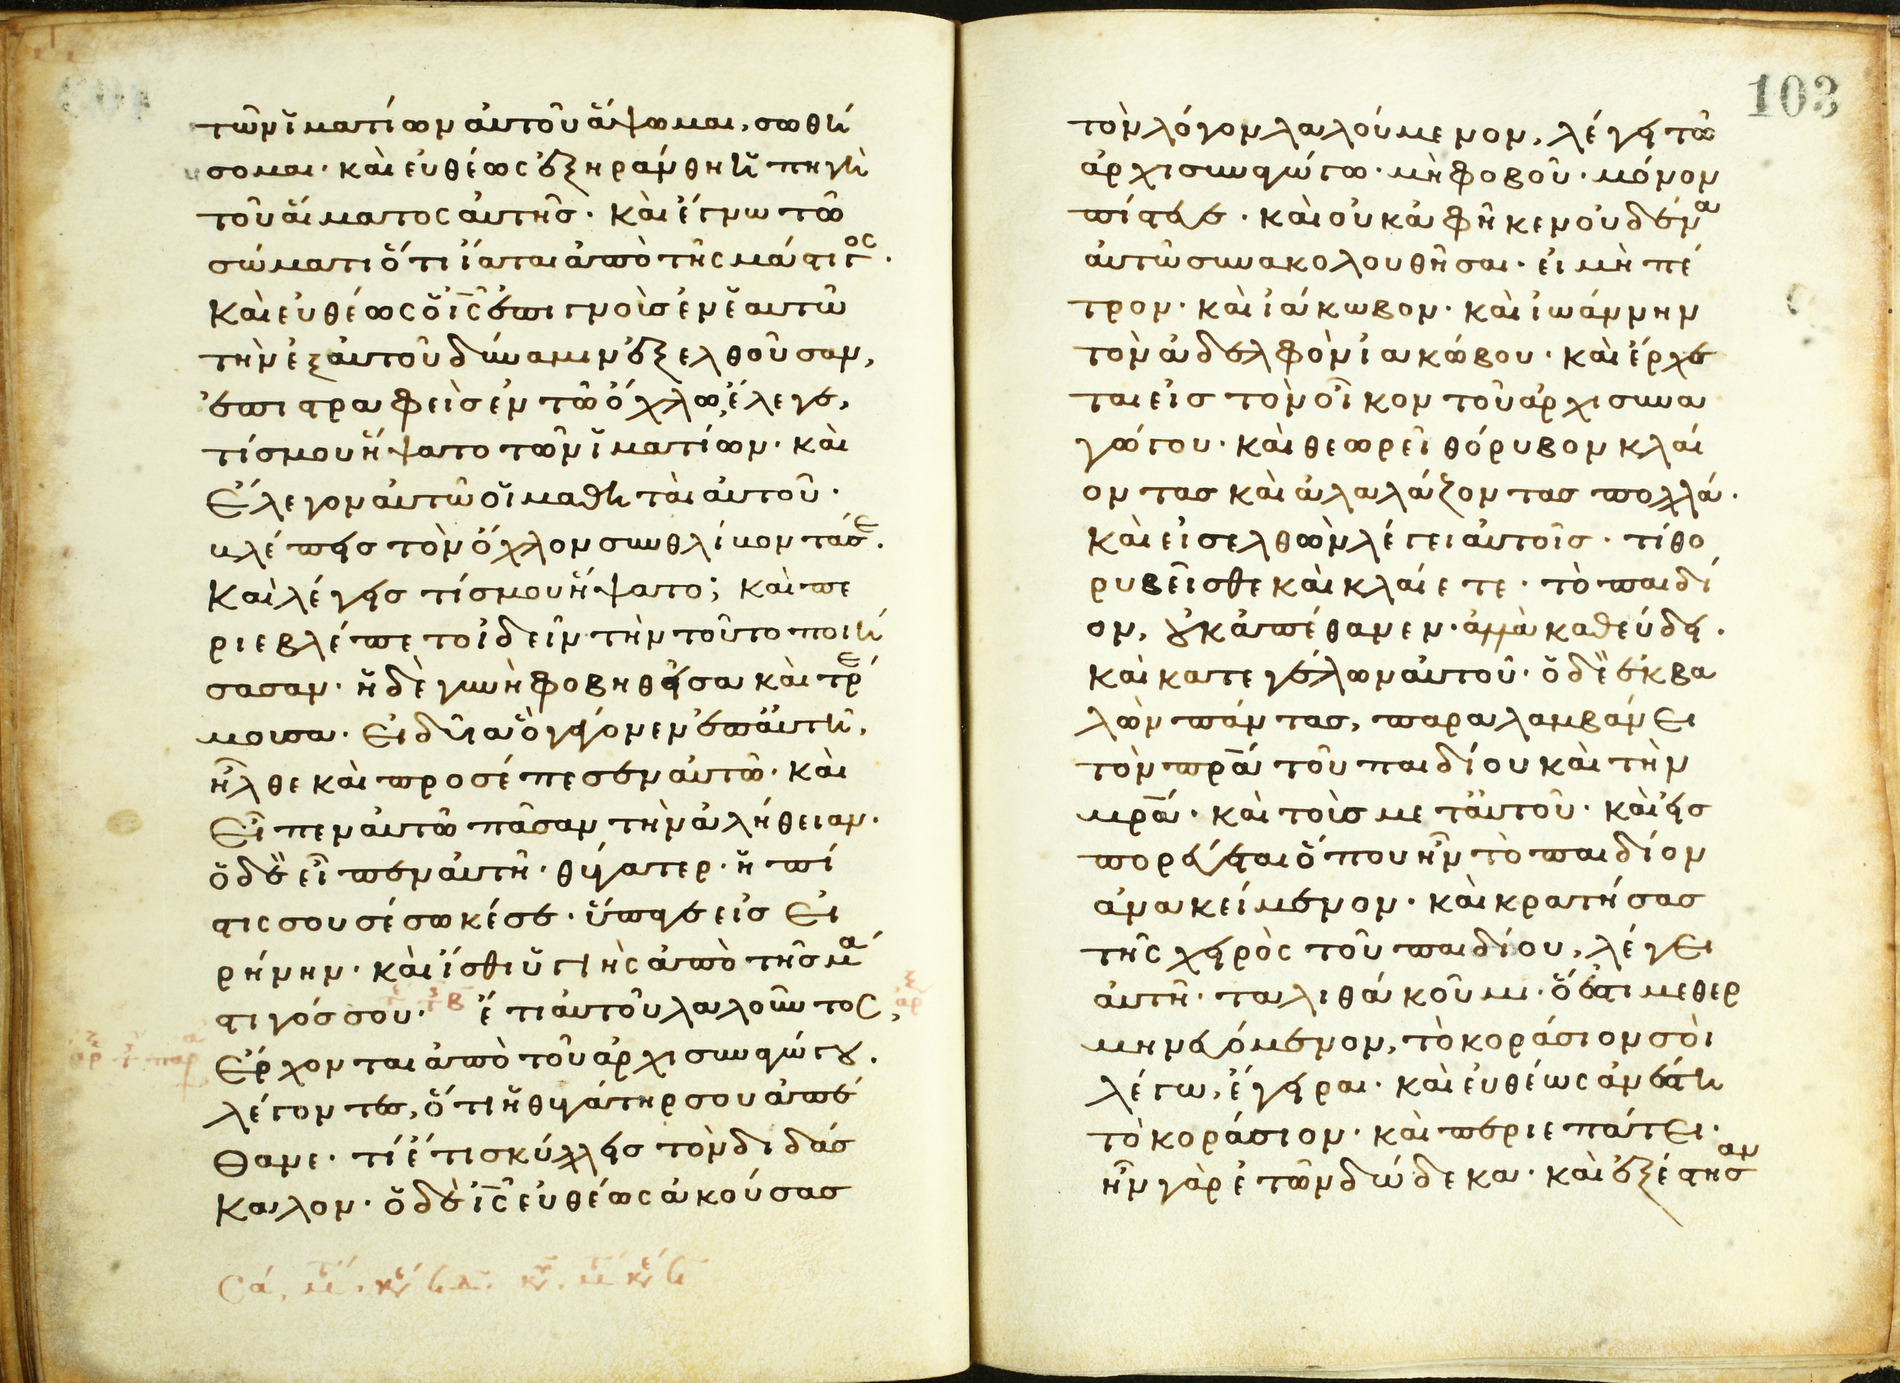 τῶν ἱματίων αὐτοῦ ἅψωμαι, σωθή
σομαι· καὶ εὐθέως ἐξηράνθη ἡ πηγὴ
τοῦ αἵματος αὐτῆς· καὶ ἔγνω τῶ
σώματι ὅτι ἴαται ἀπὸ τῆς μάστιγος·
Καὶ εὐθέως ὁ ἰς ἐπιγνοὺς ἐν ἑαυτῶ
τὴν ἐξ αὐτοῦ δύναμιν ἐξελθοῦσαν,
ἐπιστραφεὶς ἐν τῶ ὄχλω, ἔλεγε,
τίς μου ἥψατο τῶν ἱματίων· καὶ
ἔλεγον αὐτῶ οἱ μαθηταὶ αὐτοῦ·
βλέπεις τὸν ὄχλον συνθλίβοντά σε·
Καὶ λέγεις τίς μου ἥψατο; καὶ πε
ριεβλέπετο ἰδεῖν τὴν τοῦτο ποιή
σασαν· ἡ δὲ γυνὴ φοβηθεῖσα καὶ τρέ
μουσα· εἰδυῖα ὃ γέγονεν ἐπ αὐτῆ,
ἦλθε καὶ προσέπεσεν αὐτῶ· καὶ
εἶπεν αὐτῶ πᾶσαν τὴν ἀλήθειαν·
ὁ δὲ εἶπεν αὐτῆ· θύγατερ· ἡ πί
στις σου σέσωκέ σε· ὕπαγε εἰς εἰ
ρήνην· καὶ ἴσθι ὑγιὴς ἀπὸ τῆς μά
στιγός σου· ἔτι αὐτοῦ λαλοῦντος,
ἔρχονται ἀπὸ τοῦ ἀρχισυναγώγου·
λέγοντες, ὅτι ἡ θυγάτηρ σου ἀπέ
θανε· τί ἔτι σκύλλεις τὸν διδάσ
καλον· ὁ δὲ ἰς εὐθέως ἀκούσας
103
τὸν λόγον λαλούμενον, λέγει τῶ
ἀρχισυναγώγω· μὴ φοβοῦ· μόνον
πίστευε· καὶ οὐκ ἀφῆκεν οὐδένα
αὐτῶ συνακολουθῆσαι· εἰ μὴ πέ
τρον· καὶ ἰάκωβον· καὶ ἰωάννην
τὸν ἀδελφὸν ἰακώβου· καὶ ἔρχε
ται εἰς τὸν οἶκον τοῦ ἀρχισυνα
γώγου· καὶ θεωρεῖ θόρυβον κλαί
οντας καὶ ἀλαλάζοντας πολλά·
Καὶ εἰσελθὼν λέγει αὐτοῖς· τί θο
ρυβεῖσθε καὶ κλαίετε· τὸ παιδί
ον, οὐκ ἀπέθανεν· ἀλλὰ καθεύδει·
καὶ κατεγέλων αὐτοῦ· ὁ δὲ ἐκβα
λὼν πάντας, παραλαμβάνει
τὸν πρα τοῦ παιδίου καὶ τὴν
μρα· καὶ τοὺς μετ αὐτοῦ· καὶ εἰσ
πορεύεται ὅπου ἦν τὸ παιδίον
ἀνακείμενον· καὶ κρατήσας
τῆς χειρὸς τοῦ παιδίου, λέγει
αὐτῆ· ταλιθά κοῦμι· ὅ ἐστι μεθερ
μηνευόμενον, τὸ κοράσιον σοὶ
λέγω, ἔγειραι· καὶ εὐθέως ἀνέστη
τὸ κοράσιον· καὶ περιεπάτει·
ἦν γὰρ ἐτῶν δώδεκα· καὶ ἐξέστησαν